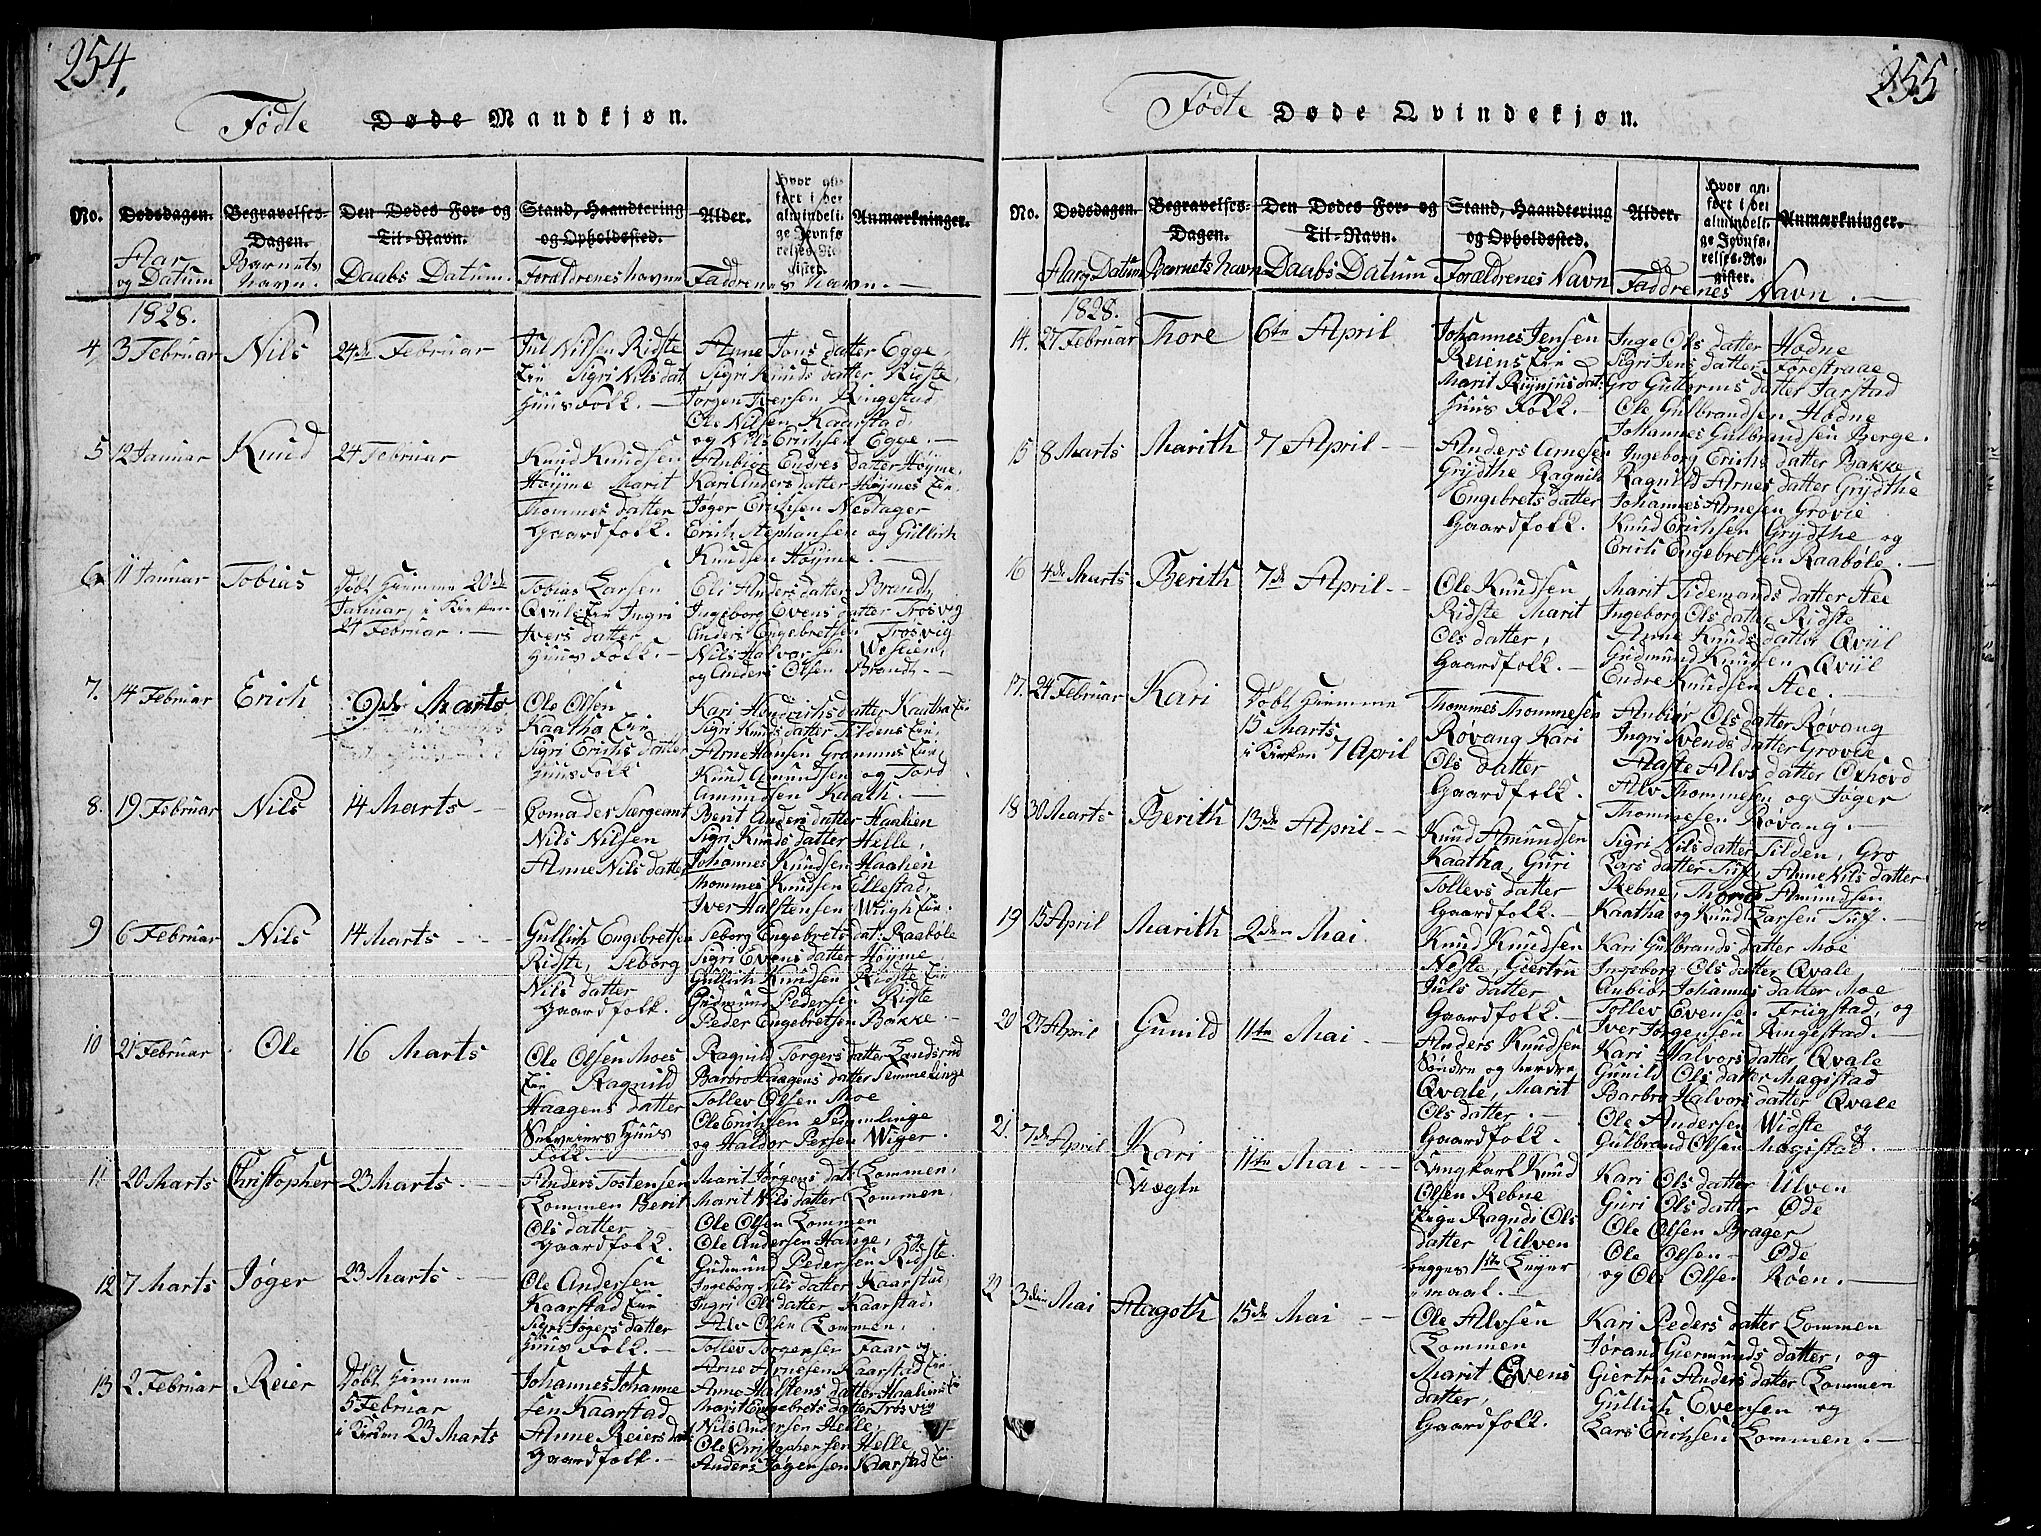 254.
Fødte Døde Mandkjøn.
No. Dødsdagen. Begravelses-Dagen. Den Dødes For- og Til-Navn. Stand, Haandtering og Opholdssted. Alder. Hvor anført i det almindelige Jevnførelses-Register. Anmærkninger.
Aar og Datum Barnets Navn. Daabs Datum. Forældrenes Navne Faddrenes Navn. —
1828.
4, 3 Februar Nils 24de Februar
Jul Nilsen Ridste
Eie Sigri Nils dat:
Huus Folk. —
Anne Jons datter Egge,
Sigri Knuds datter Ridste,
Jørgen Iversen Ringestad
Ole Nilsen Kaarstad,
og Nils Erichsen Egge. —
5, 12 Januar Knud 24 Februar
Knud Knudsen
Høyme Marit
Thommes datter
Gaardfolk.
Anbiør Endres datter Høyme,
Kari Anders datter Høymes Eie,
Jøger Erichsen Neslager
Erich Stephansen og Gullich
Knudsen Høyme. —
6, 11 Januar Tobias
Døbt Hiemme 20de
Januar, i Kirken
24 Februar. —
Tobias Larsen
Qviils Eie Ingri
Ivers datter
Huus Folk. —
Eli Anders datter Brandt,
Ingeborg Evens datter Trosvig
Anders Engebretsen Trosvig
Nils Halvorsen Woslien,
og Anders Olsen Brandt. —
7. 14 Februar Erich 9de Marts
Ole Olsen
Kaatha Eie
Sigri Erichs datter
Huus Folk
Kari Hendrichs datter Kaatha Eie
Sigri Knuds datter Tildens Eie,
Arne Hansen Grammes Eie,
Knud Amundsen og Tord
Amundsen Kaath. —
8. 19 Februar Nils 14 Marts —
Comader Sergeant
Nils Nilsen
Anne Nils datter
Berit Anders datter Haalien
Sigri Knuds datter Helle,
Johannes Knudsen Haalien
Thommes Knudsen Ellestad,
Iver Halstensen Wiigh Eie.
9 6 Februar Nils 14 Marts —
Gullich Engebretsen
Ridste, Seborg
Nils datter
Gaardfolk.
Seborg Engebrets dat: Raabøle
Sigri Evens datter Høyme
Gullich Knudsen Ridste Eie
Gudmund Pedersen Ridste
Peder Engebretsen Bakke. —
10 21 Februar Ole 16 Marts
Ole Olsen Moes
Eie Ragnild
Haagens datter
Selveiers Huus
Folk. —
Ragnild Torgers datter Landsrud
Barbro Haagens datter Semmelinge
Tollev Olsen Moe
Ole Erichsen Semmlinge
og Haldor Persen Wiger.
11 20 Marts Christopher 23 Marts. —
Anders Tostensen
Lommen Berit
Ols datter —
Gaardfolk.
Marit Jørgens dat: Lommen,
Marit Nils datter Lommen
Ole Olsen Lommen
Ole Andersen Hauge, og
Gudmund Pedersen Ridste.
12 7 Marts Jøger 23 Marts. —
Ole Andersen
Kaarstad Eie
Sigri Jøgers datter
Huus Folk. —
Ingeborg Nils datter Kaarstad
Ingri Ols datter Kaarstad,
Alv Olsen Lommen,
Tollev Torgersen Faar og
Arne Arnesen Kaarstad Eie
13 2. Februar Reier
Døbt Hiemme
5 Februar
i Kirken 23 Marts
Johannes Johanne
sen Kaarstad
Anne Reiers dat:
Gaardfolk. —
Anne Halstens datter Haaliens Eie
Marit Engebrets datter Trosvig
Nils Andersen Helle
Ole Christophersen Helle
Anders Jøgensen Kaarstad Eie.
255
Fødte Døde Qvindekjøn.
No. Dødsdagen. Begravelses-Dagen. Den Dødes For- og Til-Navn. Stand, Haandtering og Opholdssted. Alder. Hvor anført i det almindelige Jevnførelses-Register. Anmærkninger.
Aar og Datum Barnets Navn Daabs Datum Forældrenes Navn Faddrenes Navn. —
1828.
14. 27 Februar Thore 6te April
Johannes Jensen
Reiens Eie
Marit Reynjus dat:
Huus Folk. —
Inge Ols datter Hodne
Sigri Jens datter Forestraae
Gro Guttorms datter Jarstad
Ole Gulbrandsen Hodne
Johannes Gulbrandsen Berge.
15 8 Marts Marith 7 April —
Anders Arnesen
Grydthe Ragnild
Engebrets datter
Gaardfolk.
Ingeborg Erichs datter Bakke
Ragnild Arnes datter Grydthe
Johannes Arnesen Grovie
Knud Erichsen Grydthe og
Erich Engebretsen Raabøle. —
16 4de Marts Berith 7de April —
Ole Knudsen
Ridste Marit
Ols datter,
Gaardfolk. —
Marit Tidemands datter Aee
Ingeborg Ols datter Ridste
Anne Knuds datter Qviil
Gudmund Knudsen Qviil
Endre Knudsen Aee. —
17. 24 Februar Kari
Døbt Hiemme
15 Marts
i Kirken 7 April
Thommes Thommesen
Røvang Kari
Ols datter
Gaardfolk.
Anbiør Ols datter Røvang
Ingri Svends datter Grovie
Aaste Alvs datter Oxhovd
Alv Thommesen og Jøger
Thommesen Røvang. —
18 30 Marts Berith 13de April —
Knud Amundsen
Kaatha, Guri
Tollevs datter
Gaardfolk. —
Sigri Nils datter Tilden, Gro
Lars datter Tuf, Anne Nils datter
Rebne, Thord Amundsen
Kaatha og Knud Larsen Tuf. —
19 15 April Marith 2den Mai
Knud Knudsen
Neste, Geertru
Juls datter
Gaardfolk. —
Kari Gulbrands datter Moe
Ingeborg Ols datter Qvale,
Anbiør Johannes datter Moe
Tollev Evensen Frugstad, og
Iver Jørgensen Ringestad.
20 27 April Gunild 11te Mai —
Anders Knudsen
Søndre og nerdre
Qvale, Marit
Ols datter. —
Gaardfolk.
Kari Halvors datter Qvale
Gunild Ols datter Magistad
Barbro Halvors datter Qvale
Ole Andersen Widste og
Gulbrand Olsen Magistad.
21. 7de April Kari
Uægte 11te Mai —
Ungkarl Knud
Olsen Rebne
Pige Ragndi Ols
datter Ulven
begges 1ste Leyer
maal. —
Kari Ols datter Ulven
Guri Ols datter Øde
Ole Olsen Brager
Ole Olsen — Øde
og Ols Olsen Røen. —
22 3den Mai Aagoth 15de Mai —
Ole Alvsen
Lommen
Marit Evens
datter,
Gaardfolk.
Kari Peders datter Lommen
Jørand Giermunds datter, og
Giertru Anders datter Lommen
Gullich Evensen og
Lars Erichsen Lommen. —